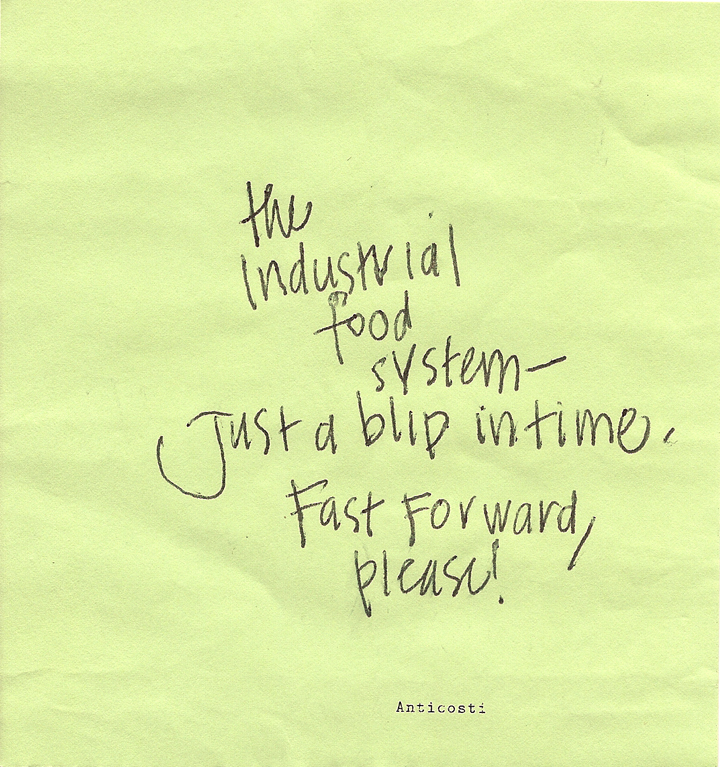 the
Industrial
food
system—
Just a blip in time.
Fast Forward,
please!
Anticosti